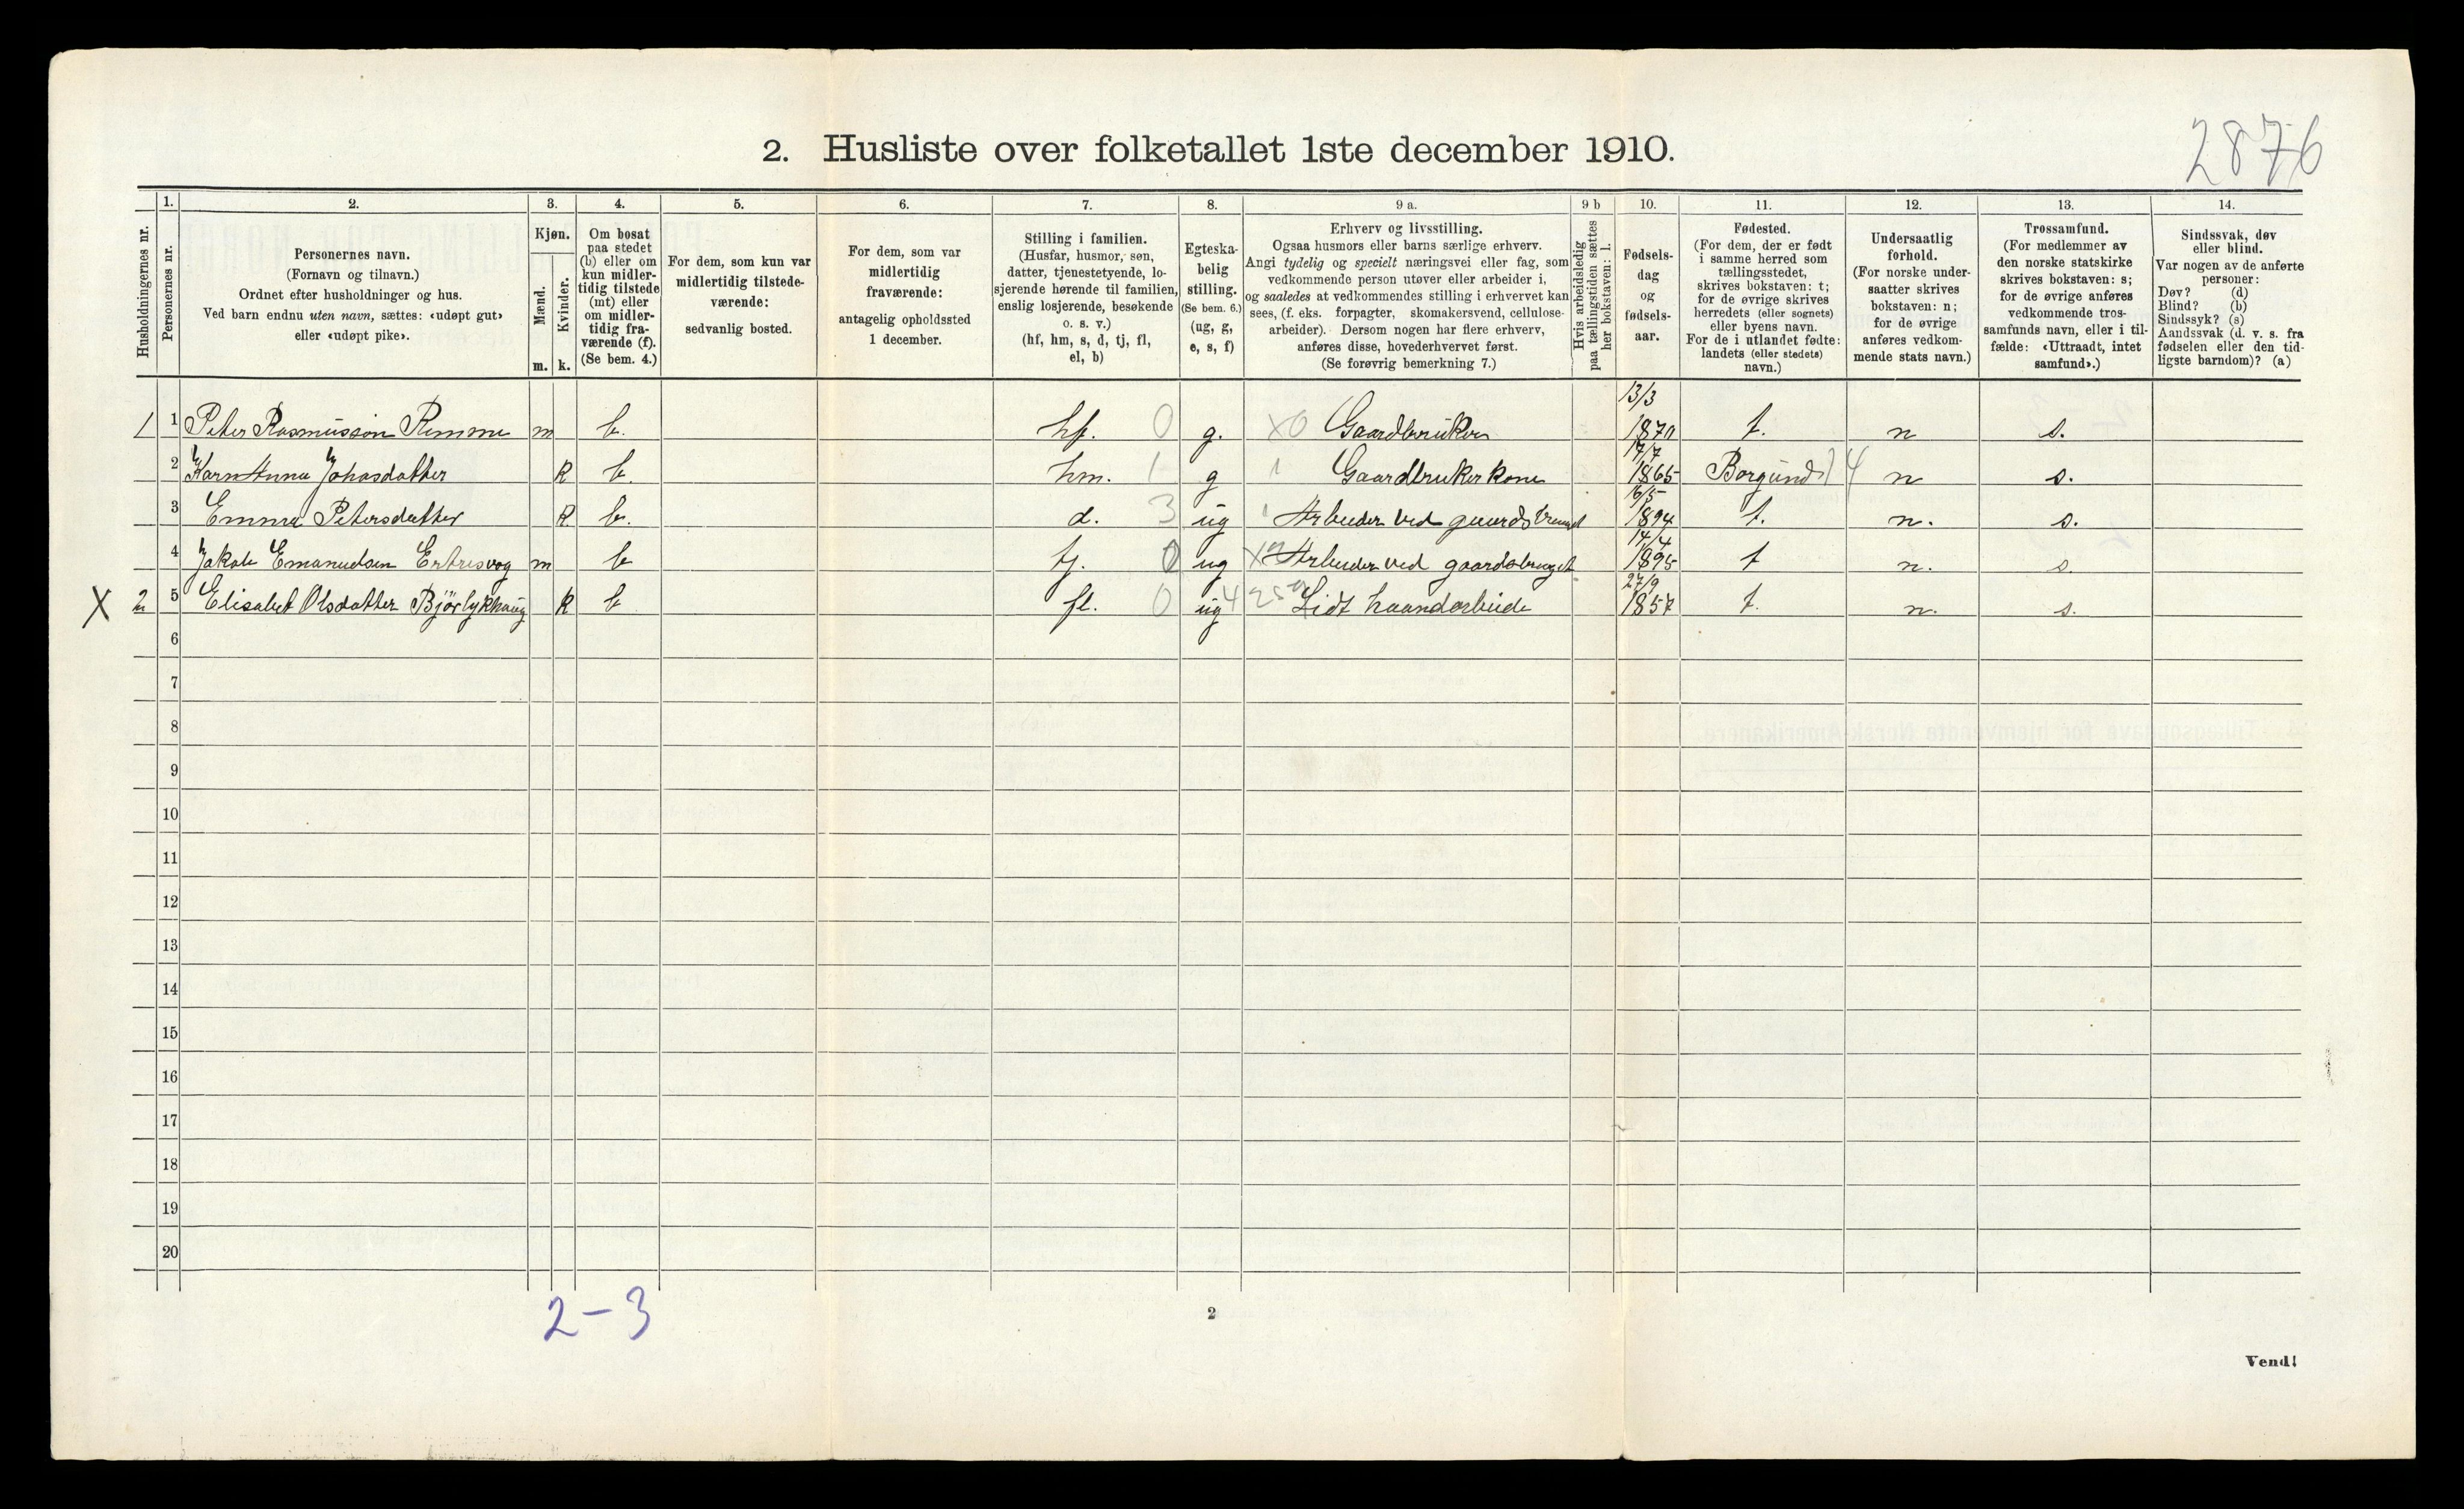 2876
2. Husliste over folketallet 1ste december 1910.
Husholdningernes nr.
1.
Personernes nr.
2.
Personernes navn.
(Fornavn og tilnavn.)
Ordnet efter husholdninger og hus.
Ved barn endnu uten navn, sættes: «udøpt gut»
eller «udøpt pike».
3.
Kjøn.
Mænd.
Kvinder.
m. k.
4.
Om bosat
paa stedet
(b) eller om
kun midler-
tidig tilstede
(mt) eller
om midler-
tidig fra-
værende (f).
(Se bem. 4.)
5.
For dem, som kun var
midlertidig tilstede-
værende:
sedvanlig bosted.
6.
For dem, som var
midlertidig
fraværende:
antagelig opholdssted
1 december.
7.
Stilling i familien.
(Husfar, husmor, søn,
datter, tjenestetyende, lo-
sjerende hørende til familien,
enslig losjerende, besøkende
o. s. v.)
(hf, hm, s, d, tj, fl,
el, b)
8.
Egteska-
belig
stilling.
(Se bem. 6.)
(ug, g,
e, s, f)
9 a.
Erhverv og livsstilling.
Ogsaa husmors eller barns særlige erhverv.
Angi tydelig og specielt næringsvei eller fag, som
vedkommende person utøver eller arbeider i,
og saaledes at vedkommendes stilling i erhvervet kan
sees, (f. eks. forpagter, skomakersvend, cellulose-
arbeider). Dersom nogen har flere erhverv,
anføres disse, hovederhvervet først.
(Se forøvrig bemerkning 7.)
9 b
Hvis arbeidsledig
paa tællingstiden sættes
her bokstaven: l.
10.
Fødsels-
dag
og
fødsels-
aar.
11.
Fødested.
(For dem, der er født
i samme herred som
tællingsstedet,
skrives bokstaven: t;
for de øvrige skrives
herredets (eller sognets)
eller byens navn.
For de i utlandet fødte:
landets (eller stedets)
navn.)
12.
Undersaatlig
forhold.
(For norske under-
saatter skrives
bokstaven: n;
for de øvrige
anføres vedkom-
mende stats navn.)
13.
Trossamfund.
(For medlemmer av
den norske statskirke
skrives bokstaven: s;
for de øvrige anføres
vedkommende tros-
samfunds navn, eller i til-
fælde: «Uttraadt, intet
samfund».)
14.
Sindssvak, døv
eller blind.
Var nogen av de anførte
personer:
Døv? (d)
Blind? (b)
Sindssyk? (s)
Aandssvak (d. v. s. fra
fødselen eller den tid-
ligste barndom)? (a)
1 1 Peter Rasmusson Remme m b. hf. 0 g. X0 Gaardbruker 13/3 1870 t. n s.
2 Karn Anna Johasdatter k b. hm. 1 g 1 Gaardbruker kone 17/7 1865 Borgund 4 n s.
3 Emma Petersdatter k b. d. 3 ug 1 Arbeider ved gaardsbruget 16/5 1894 t. n. s.
4 Jakob Emanuelsen Ertresvog m b tj. 0 ug Arbeider ved gaardsbruget 14/4 1895 t n. s.
X 2 5 Elisabet Olsdatter Bjørlykhaug k b fl. 0 ug 4 Lidt haandarbeide 27/9 1857 t. n. s.
6
7
8
9
10
11
12
13
14
15
16
17
18
19
20
2-3
2
Vend!